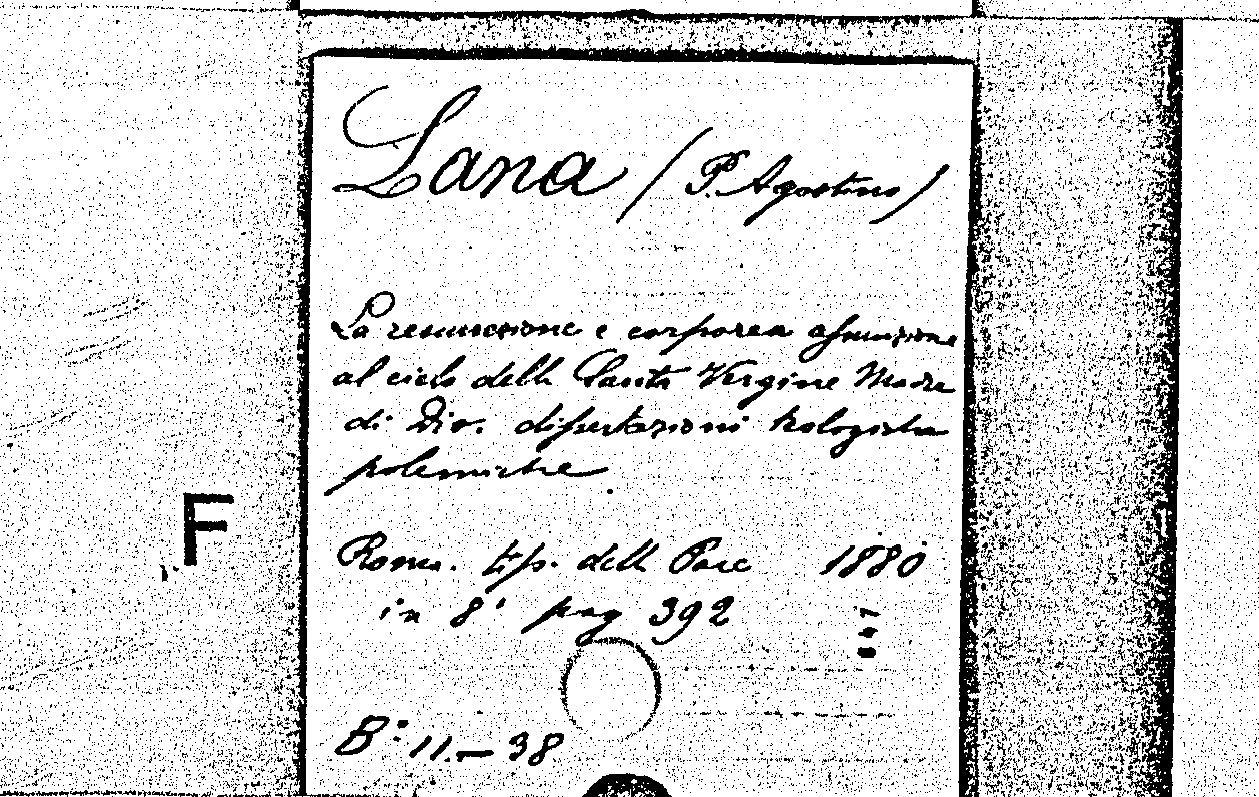 Lana (P. Agostino)
La resurrezione e corporea assunzione
al cielo della Santa Vergine Madre
di Dio. dissertazioni teologiche
polemiche.
Roma. tip. della Pace 1880
in 8° pag 392
F
B: 11.-38